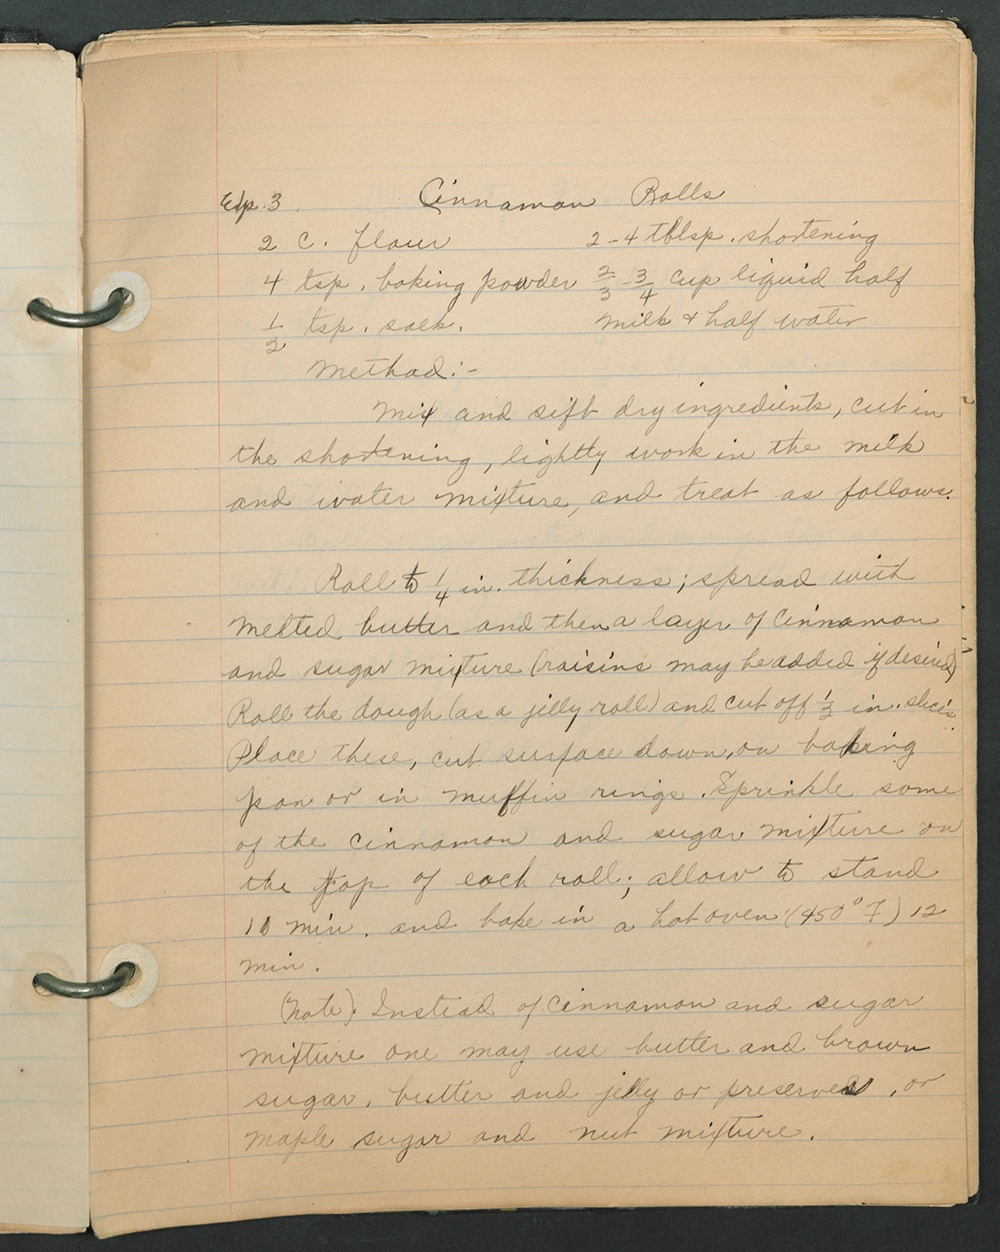 Exp. 3. Cinnamon Rolls
2 c. flour 2-4 tblsp. shortening
4 tsp. baking powder 2/3 - 3/4 cup liquid half
1/2 tsp. salt. milk & half water
Method:-
Mix and sift dry ingredients, cut in
the shortening, lightly work in the milk
and water mixture, and treat as follows.
Roll to 1/4 in. thickness; spread with
melted butter and then a layer of cinnamon
and sugar mixture (raisins may be added if desired)
Roll the dough (as a jelly roll) and cut off 1/2 in. slices.
Place these, cut surface down, on baking
pan or in muffin rings. Sprinkle some
of the cinnamon and sugar mixture on
the top of each roll; allow to stand
10 min. and bake in a hot oven (450° F) 12
min.
(Note). Instead of cinnamon and sugar
mixture one may use butter and brown
sugar, butter and jelly or preserves, or
maple sugar and nut mixture.